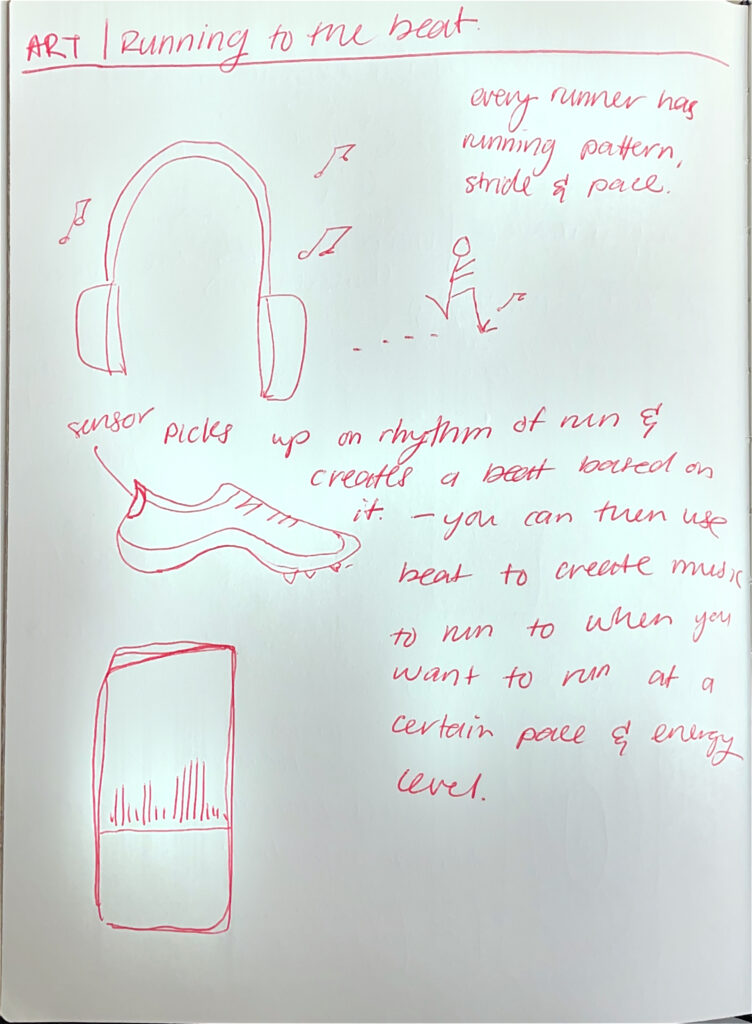 ART | Running to the beat.
every runner has
running pattern,
stride & pace.
sensor picks up on rhythm of run &
creates a beat based on
it. – you can then use
beat to create music
to run to when you
want to run at a
certain pace & energy
level.